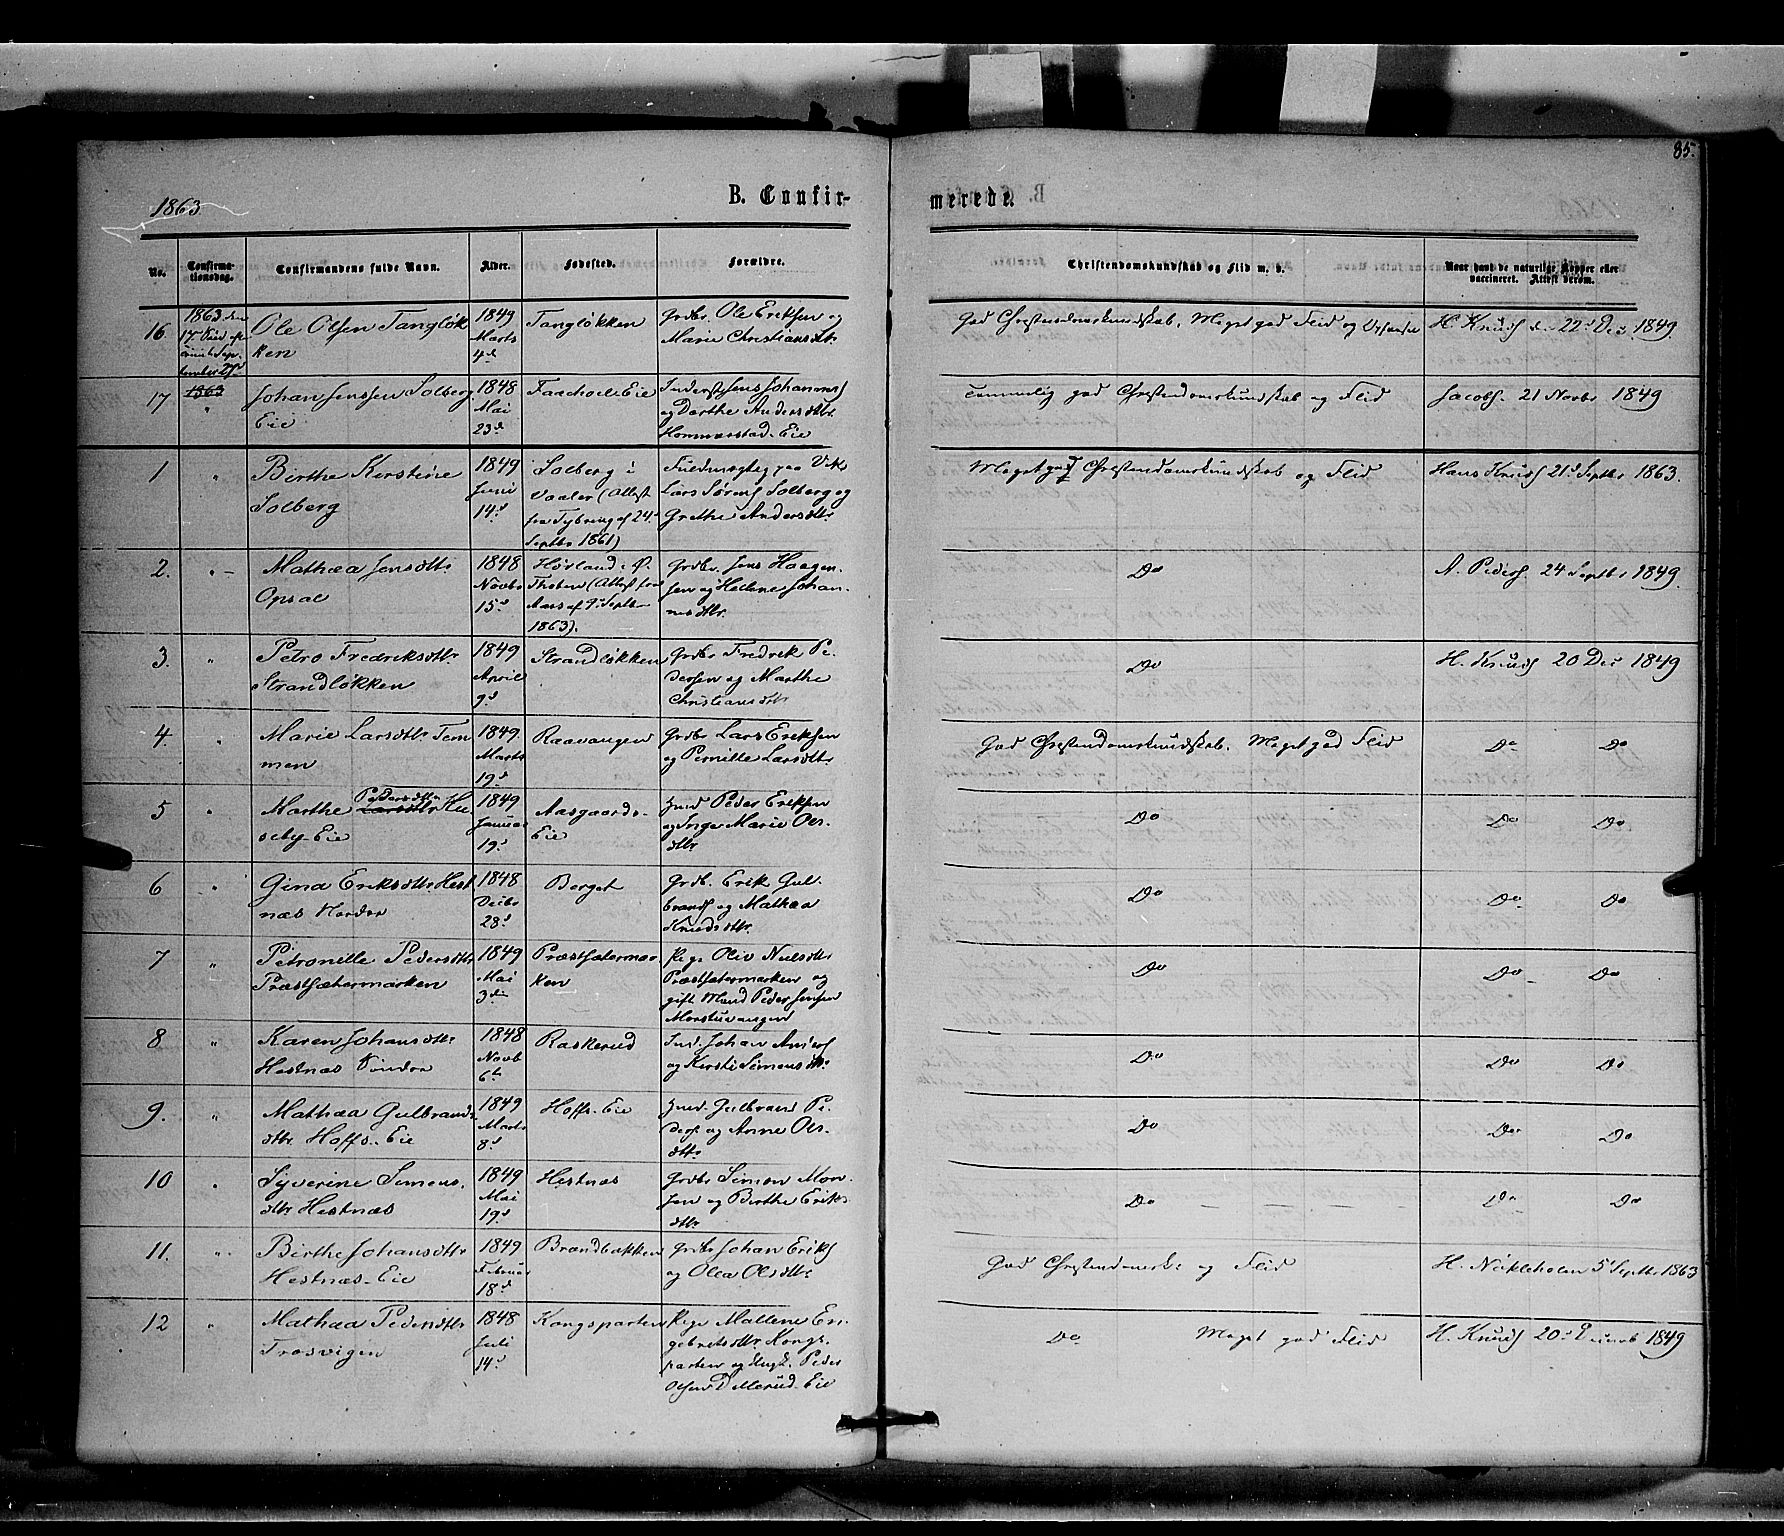 85.
1863.
B. Confir-
merede.
No.
Confirma-
tionsdag.
Confirmandens fulde Navn.
Alder.
Fødested.
Forældre.
Christendomskundskab og Flid m. v.
Naar havt de naturlige Kopper eller
vaccineret. Attest derom.
16.
1863 den
17. Sønd. efter
Trinit. Sep-
tember 27d
Ole Olsen Tangløk
ken
1849
Marts
4d
Tangløkken
Grdbr. Ole Eriksen og
Marie Christiansdtr.
God Christendomskundskab. Meget god Flid og
H. Knuds. d. 22d Dec. 1849.
17
1863
"
Johan Jenssen Solberg
Eie
1848
Mai
23d
Eie
Inderst Jens Johannes
og Dorthe Andersdtr.
Hommerstad-Eie
Temmelig god Christendomskundskab og Flid
Jacobs. 21 Novbr 1849
1
"
Birthe Kerstine
Solberg
1849
Juni
14d
Solberg i
Vaaler (Attest
fra Tybring af 24.
Septbr 1861)
Fuldmægtig paa
Lars Sørens. Solberg og
Grethe Andersdtr.
Meget god Christendomskundskab og Flid
Hans Knuds. 21d Septbr 1863.
2.
" -
Mathea Jensdtr.
Opsal
1848
Novbr
15d
Høsland i Ø.
Thoten (Attest fra
Aars af 9d Septbr
1863).
Grdbr. Jens Haagen-
sen og Hellene Johan-
nesdtr.
Do
A. Peders. 24 Septbr 1849.
3.
"
Petro Fredriksdtr.
Strandløkken
1849
April
9d
Strandløkken
Grdbr Fredrik Pe-
dersen og Marthe
Christiansdtr
Do
H. Knuds 20 Dec 1849
4.
"
Marie Larsdtr. Tem
men
1849.
Marts
19d
Raavangen
Grdbr Lars Eriksen
og Pernille Larsdtr
God Christendomskundskab. Meget god Flid
Do Do
5
"
Marthe Larsdtr Pedersdtr. Hu
seby-Eie
1849
Januar
19d
Aasgaards-
Eie
Huusm. Peder Eriksen
og Inger Marie Ols-
dtr.
Do
Do Do
6
"
Gina Eriksdtr. Hest
næs Nordre
1848
Decbr
28d
Berget
Grdb. Erik Gul-
brands. og Mathea
Knudsdtr.
Do
Do Do
7
"
Petronelle Pedersdtr.
Præstsætermarken
1849
Mai
3die
Præstsætermar-
ken
Pige Oliv Neelsdtr
Præstsætermarken og
gift Mand Peder Jensen
Morstuvangen
Do
Do Do
8
"
Karen Johansdtr.
Hestnæs Søndre
1848
Novb
6te
Raskerud
Ind. Johan Anders.
og Kersti Simensdtr.
Do
Do Do
9.
"
Mathea Gulbrands
dtr. Hoffs. Eie
1849
Marts
8d
Hoffs. Eie
Huusm. Gulbrand Pe-
ders. og Anne Ols-
dtr.
Do
Do Do
10
"
Syverine Simens.
dtr. Hestnæs
1849
Mai
19d
Hestnæs
Grdbr Simon Mon-
sen og Birthe Eriks
dtr.
Do
Do Do
11.
"
Birthe Johansdtr.
Hestnæs-Eie
1849
Februar
18d
Brændbakken
Grdbr Johan Eriks.
og Olea Olsdtr.
God Christendomsk. og Flid
H. Nickleholm 5d Septbr 1863
12
"
Mathea Pedersdtr.
Frosvigen
1848
Juli
14d
Kongsparten
Pige Mallene En-
gebretsdtr. Kongs-
parten og Ungk. Peder
Olsen Dellerud-Eie
Do Meget god Flid
H. Knuds. 20d Decemb 1849